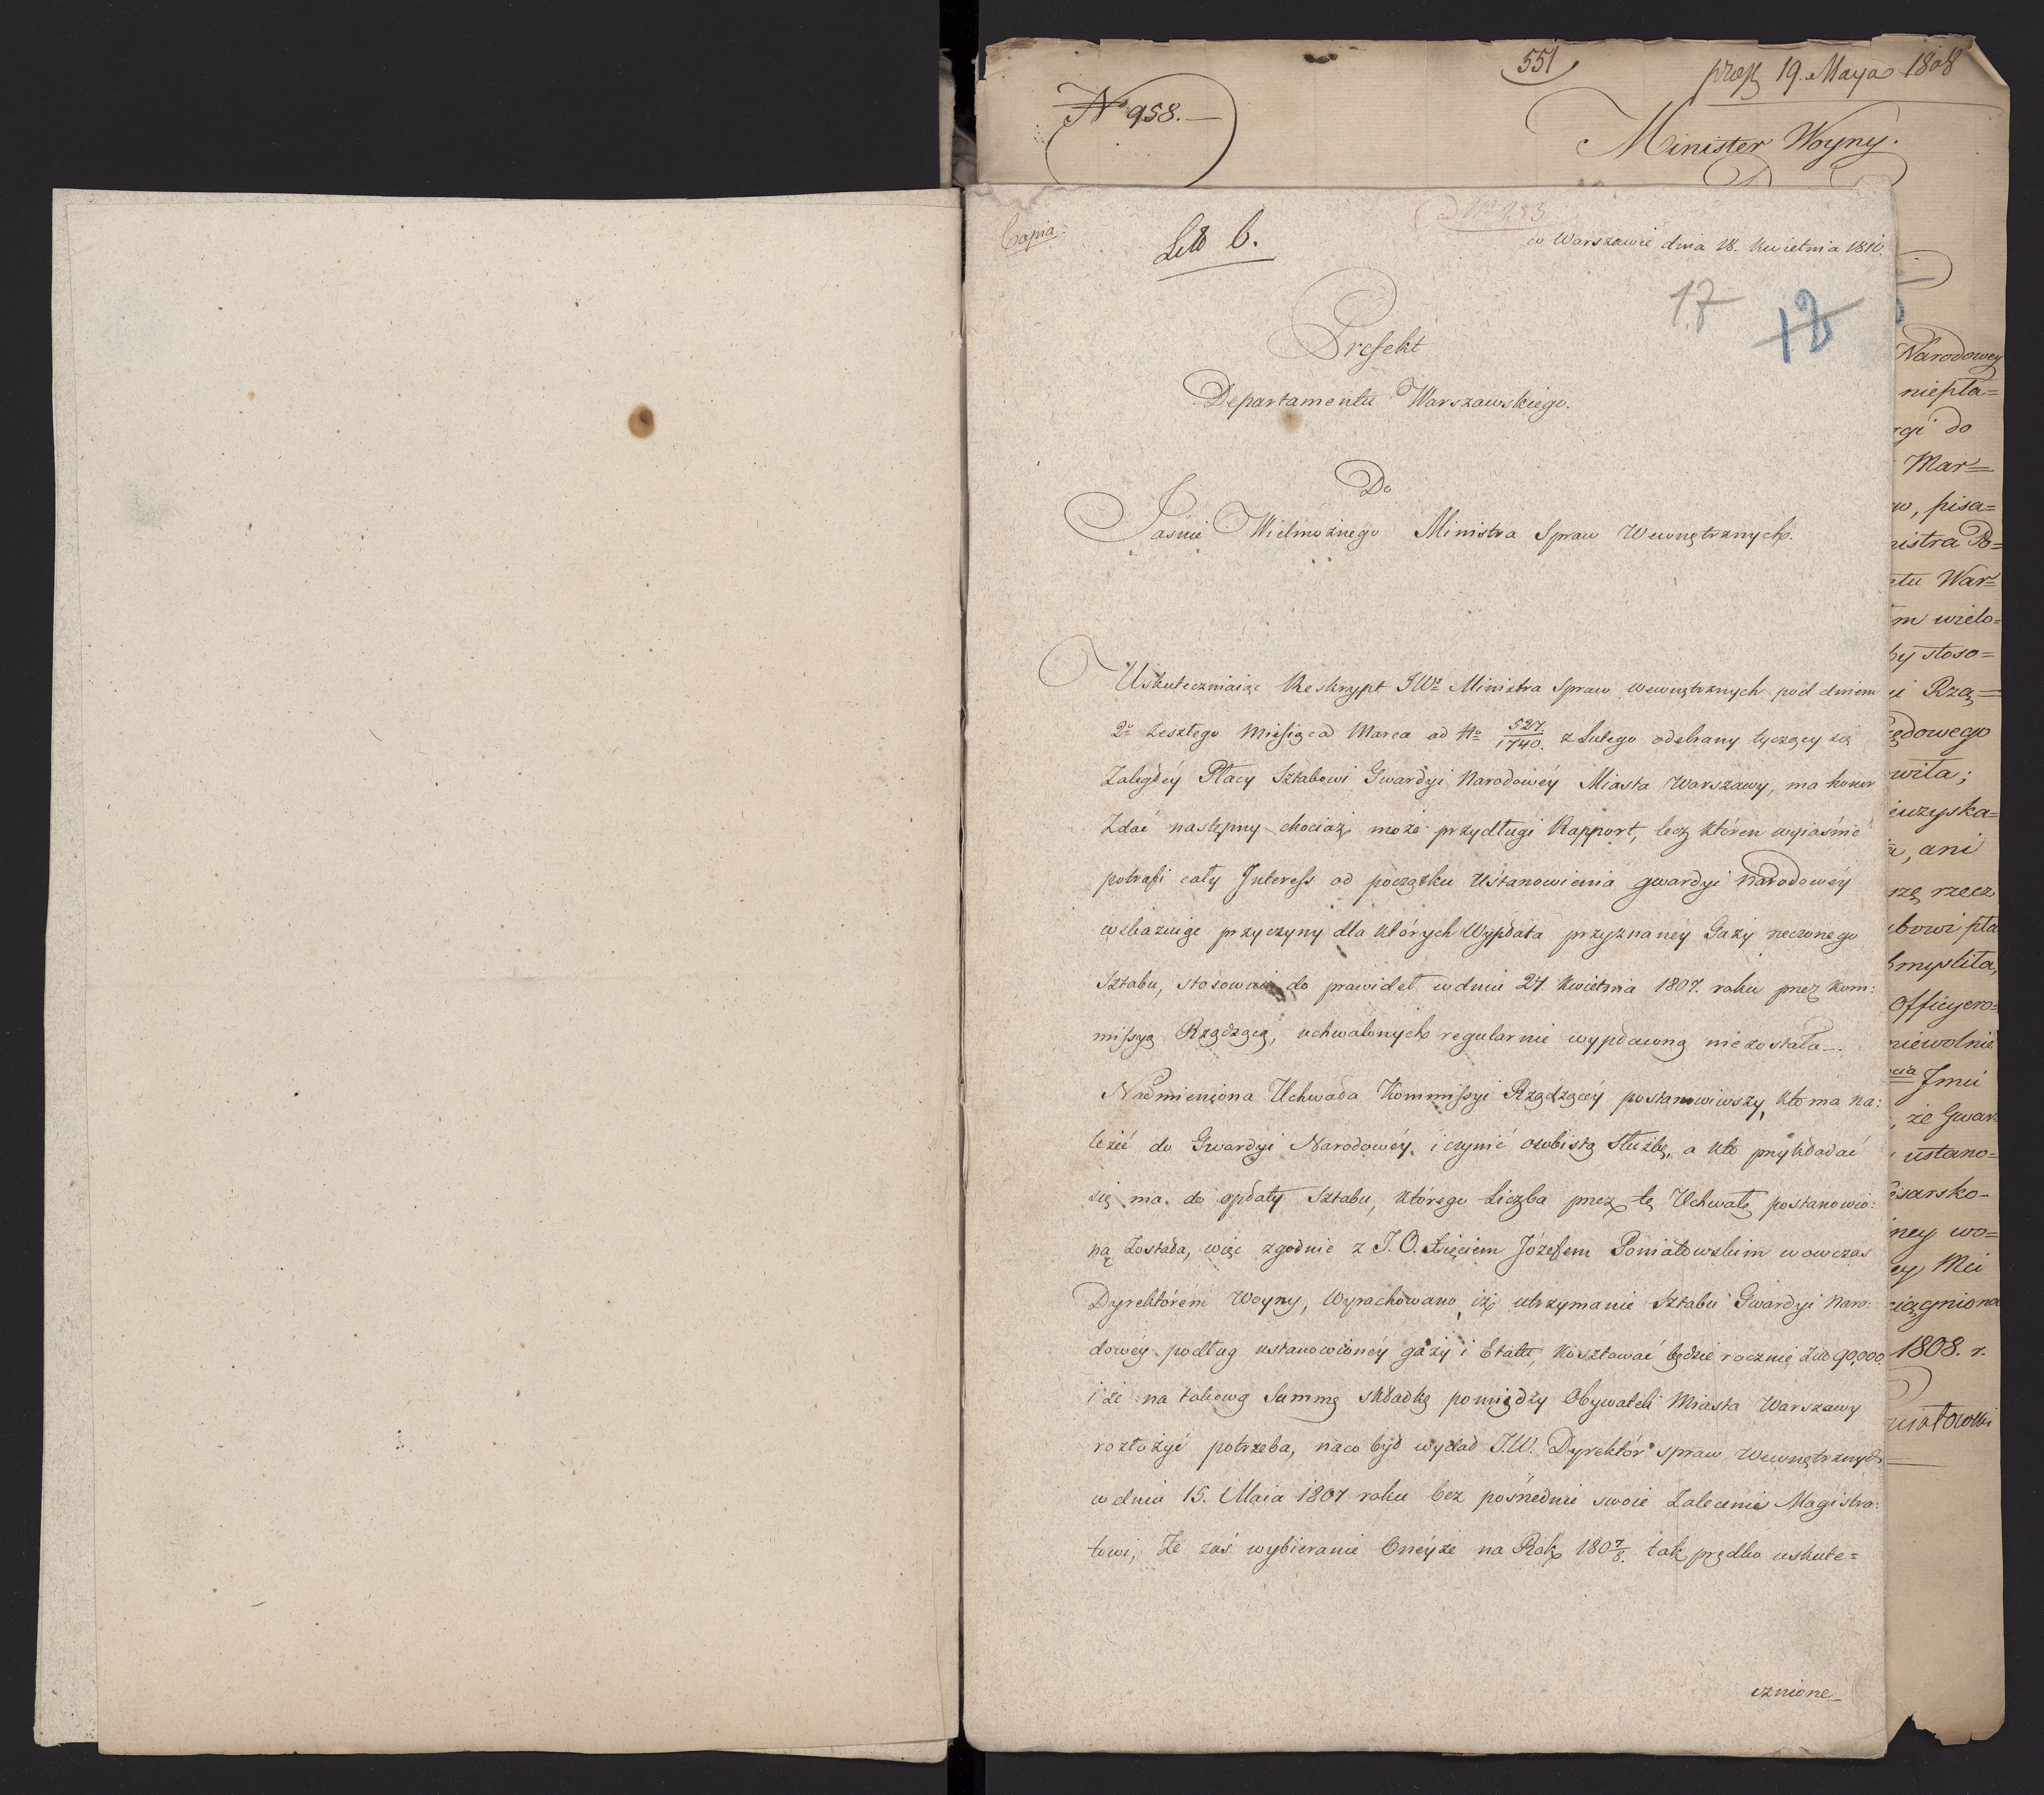 551
præs 19. Maya 1808
No 958.
Minister Woyny.
Copia.
Litt b.
ad No 953
w Warszawie dnia 18. Kwietnia 1810.
17
12
Prefekt
Departamentu Warszawskiego.
Do
Jaśnie Wielmożnego Ministra Spraw Wewnętrznych.
Uskuteczniaiąc Reskrypt JWo Ministra Spraw wewnętrznych pod dniem
2o zeszłego Miesiąca Marca ad No 527./1740. z Lutego odebrany tyczący się
Zaległéy Płacy Sztabowi Gwardyi Narodowéy Miasta Warszawy, ma honor
Zdać następny chociaż może przydługi Rapport, lecz któren wyiaśnić
potrafi cały Interess od początku Ustanowienia gwardyi Narodowéy
wskazuiąc przyczyny dla których Wypłata przyznanéy Gaży rzeczonego
Sztabu, stosownie do prawideł w dniu 24. Kwietnia 1807. roku przez Kom:
missyą Rządzącą, uchwalonych regularnie wypłaconą nie została.—
Nadmieniona Uchwała Kommissyi Rządzącéy postanowiwszy, kto ma na:
leżeć do Gwardyi Narodowéy, i czynić osobistą Służbę, a kto przykładać
się ma do opłaty Sztabu, którego Liczba przez tę Uchwałę postanowio:
ną została, więc zgodnie z J. O. Xięciem Józefem Poniatowskim wowczas
Dyrektórem Woyny, Wyrachowano, iż utrzymanie Sztabu Gwardyi Naro:
dowéy podług ustanowionéy gaży i Etatu, kosztować będzie rocznie Złł 90,000.
i że na takową Summę składkę pomiędzy Obywateli Miasta Warszawy
rozłożyć potrzeba, na co był wydał J.W. Dyrektór spraw Wewnętrznych
w dniu 15. Maia 1807 roku bez pośrednie swoie Zalecenie Magistra:
towi, Że zaś wybieranie Onéyże na Rok 1807/8. tak prędko uskute=
cznione_
Narodowey
niepła=
rgi do
Mar=
w, pisa=
nistra Po=
ntu War=
m wielo=
by stoso=
i Rzą=
ędowego
wiła;
euzyska=
a, ani
rzę rzecz
bowi pła
myslita,
Officyero=
niewolnie
Jmci
, że Gwar=
ustano=
esarsko-
ney wo=
ey Mci
ciągniona
1808. r.
niatowski